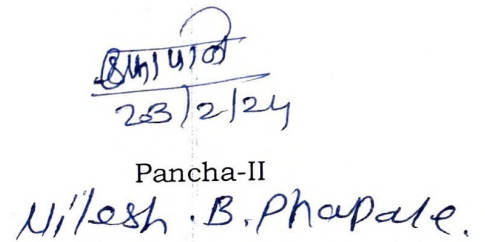 23/2/24
Pancha-II
Nilesh . B. Phapale.